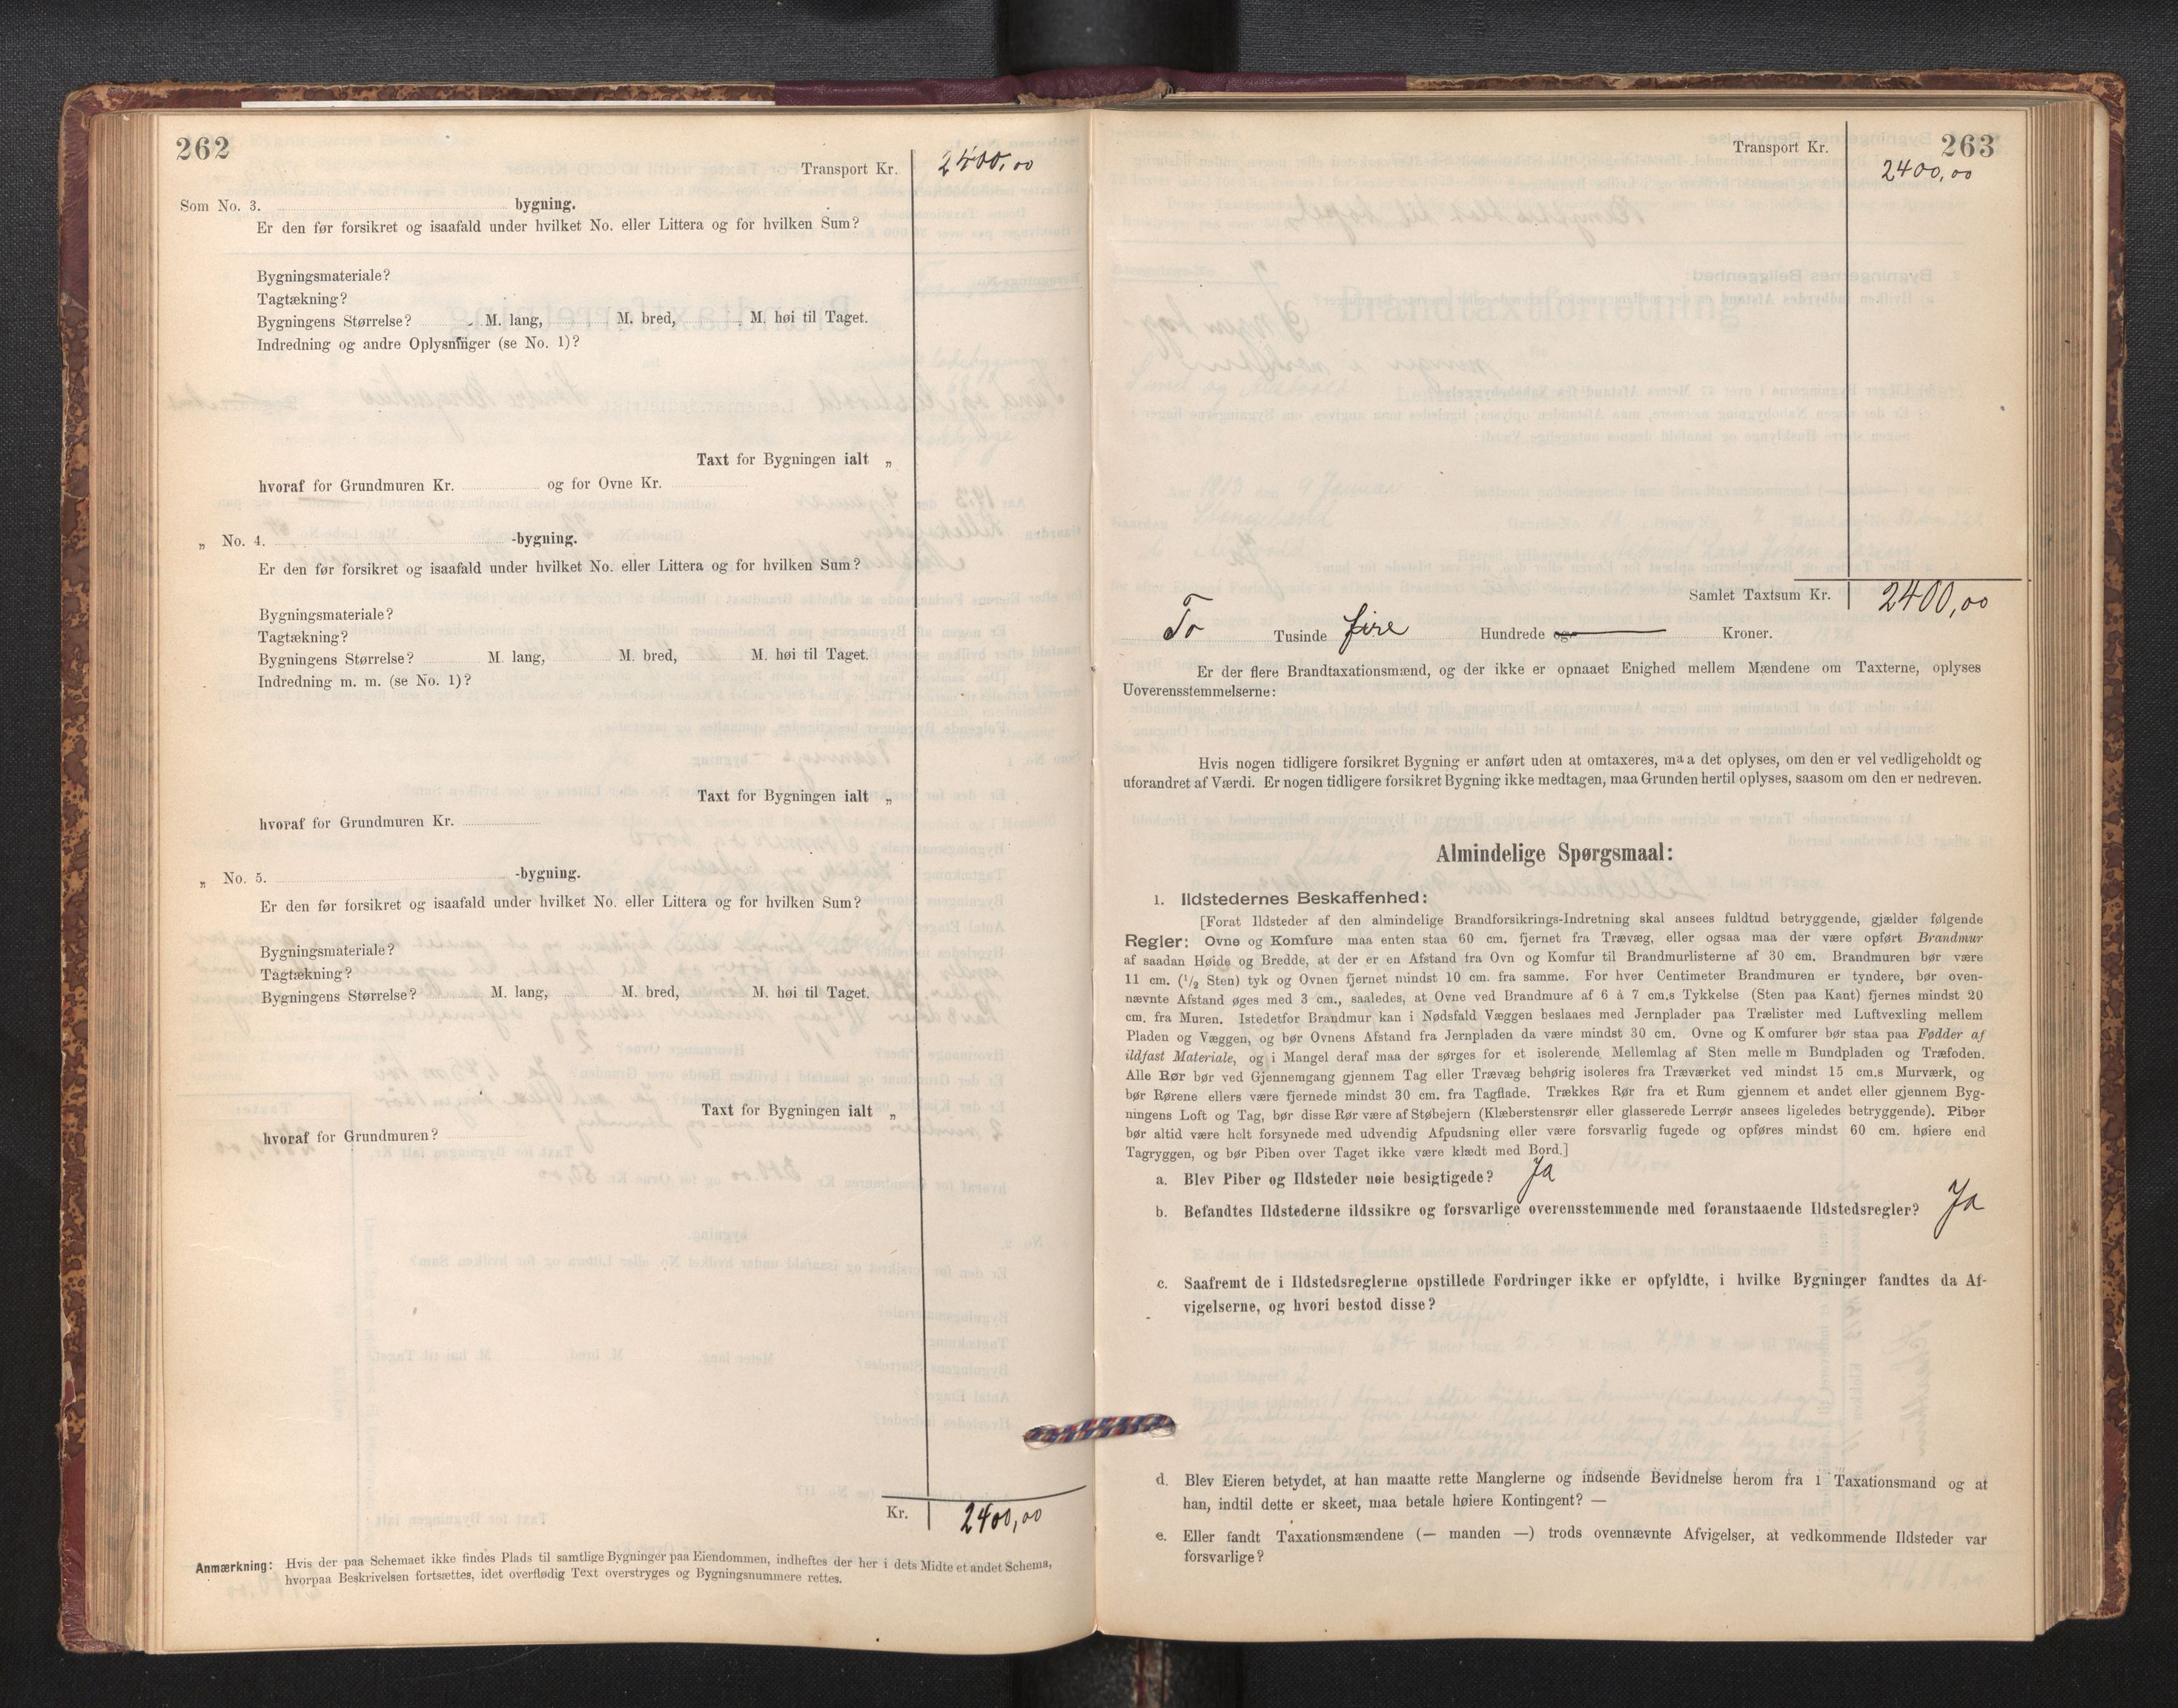 262
Transport Kr. 2400,00
Som No. 3. bygning.
Er den før forsikret og isaafald under hvilket No. eller Littera og for hvilken Sum?
Bygningsmateriale?
Tagtækning?
Bygningens Størrelse? M. lang, M. bred, M. høi til Taget.
Indredning og andre Oplysninger (se No. 1)?
Taxt for Bygningen ialt „
hvoraf for Grundmuren Kr. og for Ovne Kr.
„ No. 4. -bygning.
Er den før forsikret og isaafald under hvilket No. eller Littera og for hvilken Sum?
Bygningsmateriale?
Tagtækning?
Bygningens Størrelse? M. lang, M. bred, M. høi til Taget.
Indredning m. m. (se No. 1)?
Taxt for Bygningen ialt „
hvoraf for Grundmuren Kr.
„ No. 5. -bygning.
Er den før forsikret og isaafald under hvilket No. eller Littera og for hvilken Sum?
Bygningsmateriale?
Tagtækning?
Bygningens Størrelse? M. lang, M. bred, M. høi til Taget.
Taxt for Bygningen ialt „
hvoraf for Grundmuren?
Kr. 2400,00
Anmærkning: Hvis der paa Schemaet ikke findes Plads til samtlige Bygninger paa Eiendommen, indheftes der her i dets Midte et andet Schema,
hvorpaa Beskrivelsen fortsættes, idet overflødig Text overstryges og Bygningsnummere rettes.
263
Transport Kr. 2400,00
Samlet Taxtsum Kr. 2400,00
To Tusinde fire Hundrede og Kroner.
Er der flere Brandtaxationsmænd, og der ikke er opnaaet Enighed mellem Mændene om Taxterne, oplyses
Uoverensstemmelserne:
Hvis nogen tidligere forsikret Bygning er anført uden at omtaxeres, maa det oplyses, om den er vel vedligeholdt og
uforandret af Værdi. Er nogen tidligere forsikret Bygning ikke medtagen, maa Grunden hertil oplyses, saasom om den er nedreven.
Almindelige Spørgsmaal:
1. Ildstedernes Beskaffenhed:
[Forat Ildsteder af den almindelige Brandforsikrings-Indretning skal ansees fuldtud betryggende, gjælder følgende
Regler: Ovne og Komfure maa enten staa 60 cm. fjernet fra Trævæg, eller ogsaa maa der være opført Brandmur
af saadan Høide og Bredde, at der er en Afstand fra Ovn og Komfur til Brandmurlisterne af 30 cm. Brandmuren bør være
11 cm. (1/2 Sten) tyk og Ovnen fjernet mindst 10 cm. fra samme. For hver Centimeter Brandmuren er tyndere, bør oven-
nævnte Afstand øges med 3 cm., saaledes, at Ovne ved Brandmure af 6 à 7 cm.s Tykkelse (Sten paa Kant) fjernes mindst 20
cm. fra Muren. Istedetfor Brandmur kan i Nødsfald Væggen beslaaes med Jernplader paa Trælister med Luftvexling mellem
Pladen og Væggen, og bør Ovnens Afstand fra Jernpladen da være mindst 30 cm. Ovne og Komfurer bør staa paa Fødder af
ildfast Materiale, og i Mangel deraf maa der sørges for et isolerende Mellemlag af Sten mellem Bundpladen og Træfoden.
Alle Rør bør ved Gjennemgang gjennem Tag eller Trævæg behørig isoleres fra Træværket ved mindst 15 cm.s Murværk, og
bør Rørene ellers være fjernede mindst 30 cm. fra Tagflade. Trækkes Rør fra et Rum gjennem et andet eller gjennem Byg-
ningens Loft og Tag, bør disse Rør være af Støbejern (Klæberstensrør eller glasserede Lerrør ansees ligeledes betryggende). Piber
bør altid være helt forsynede med udvendig Afpudsning eller være forsvarlig fugede og opføres mindst 60 cm. høiere end
Tagryggen, og bør Piben over Taget ikke være klædt med Bord.]
a. Blev Piber og Ildsteder nøie besigtigede? Ja
b. Befandtes Ildstederne ildssikre og forsvarlige overensstemmende med foranstaaende Ildstedsregler? Ja
c. Saafremt de i Ildstedsreglerne opstillede Fordringer ikke er opfyldte, i hvilke Bygninger fandtes da Af-
vigelserne, og hvori bestod disse?
d. Blev Eieren betydet, at han maatte rette Manglerne og indsende Bevidnelse herom fra 1 Taxationsmand og at
han, indtil dette er skeet, maa betale høiere Kontingent? —
e. Eller fandt Taxationsmændene (— manden —) trods ovennævnte Afvigelser, at vedkommende Ildsteder var
forsvarlige?